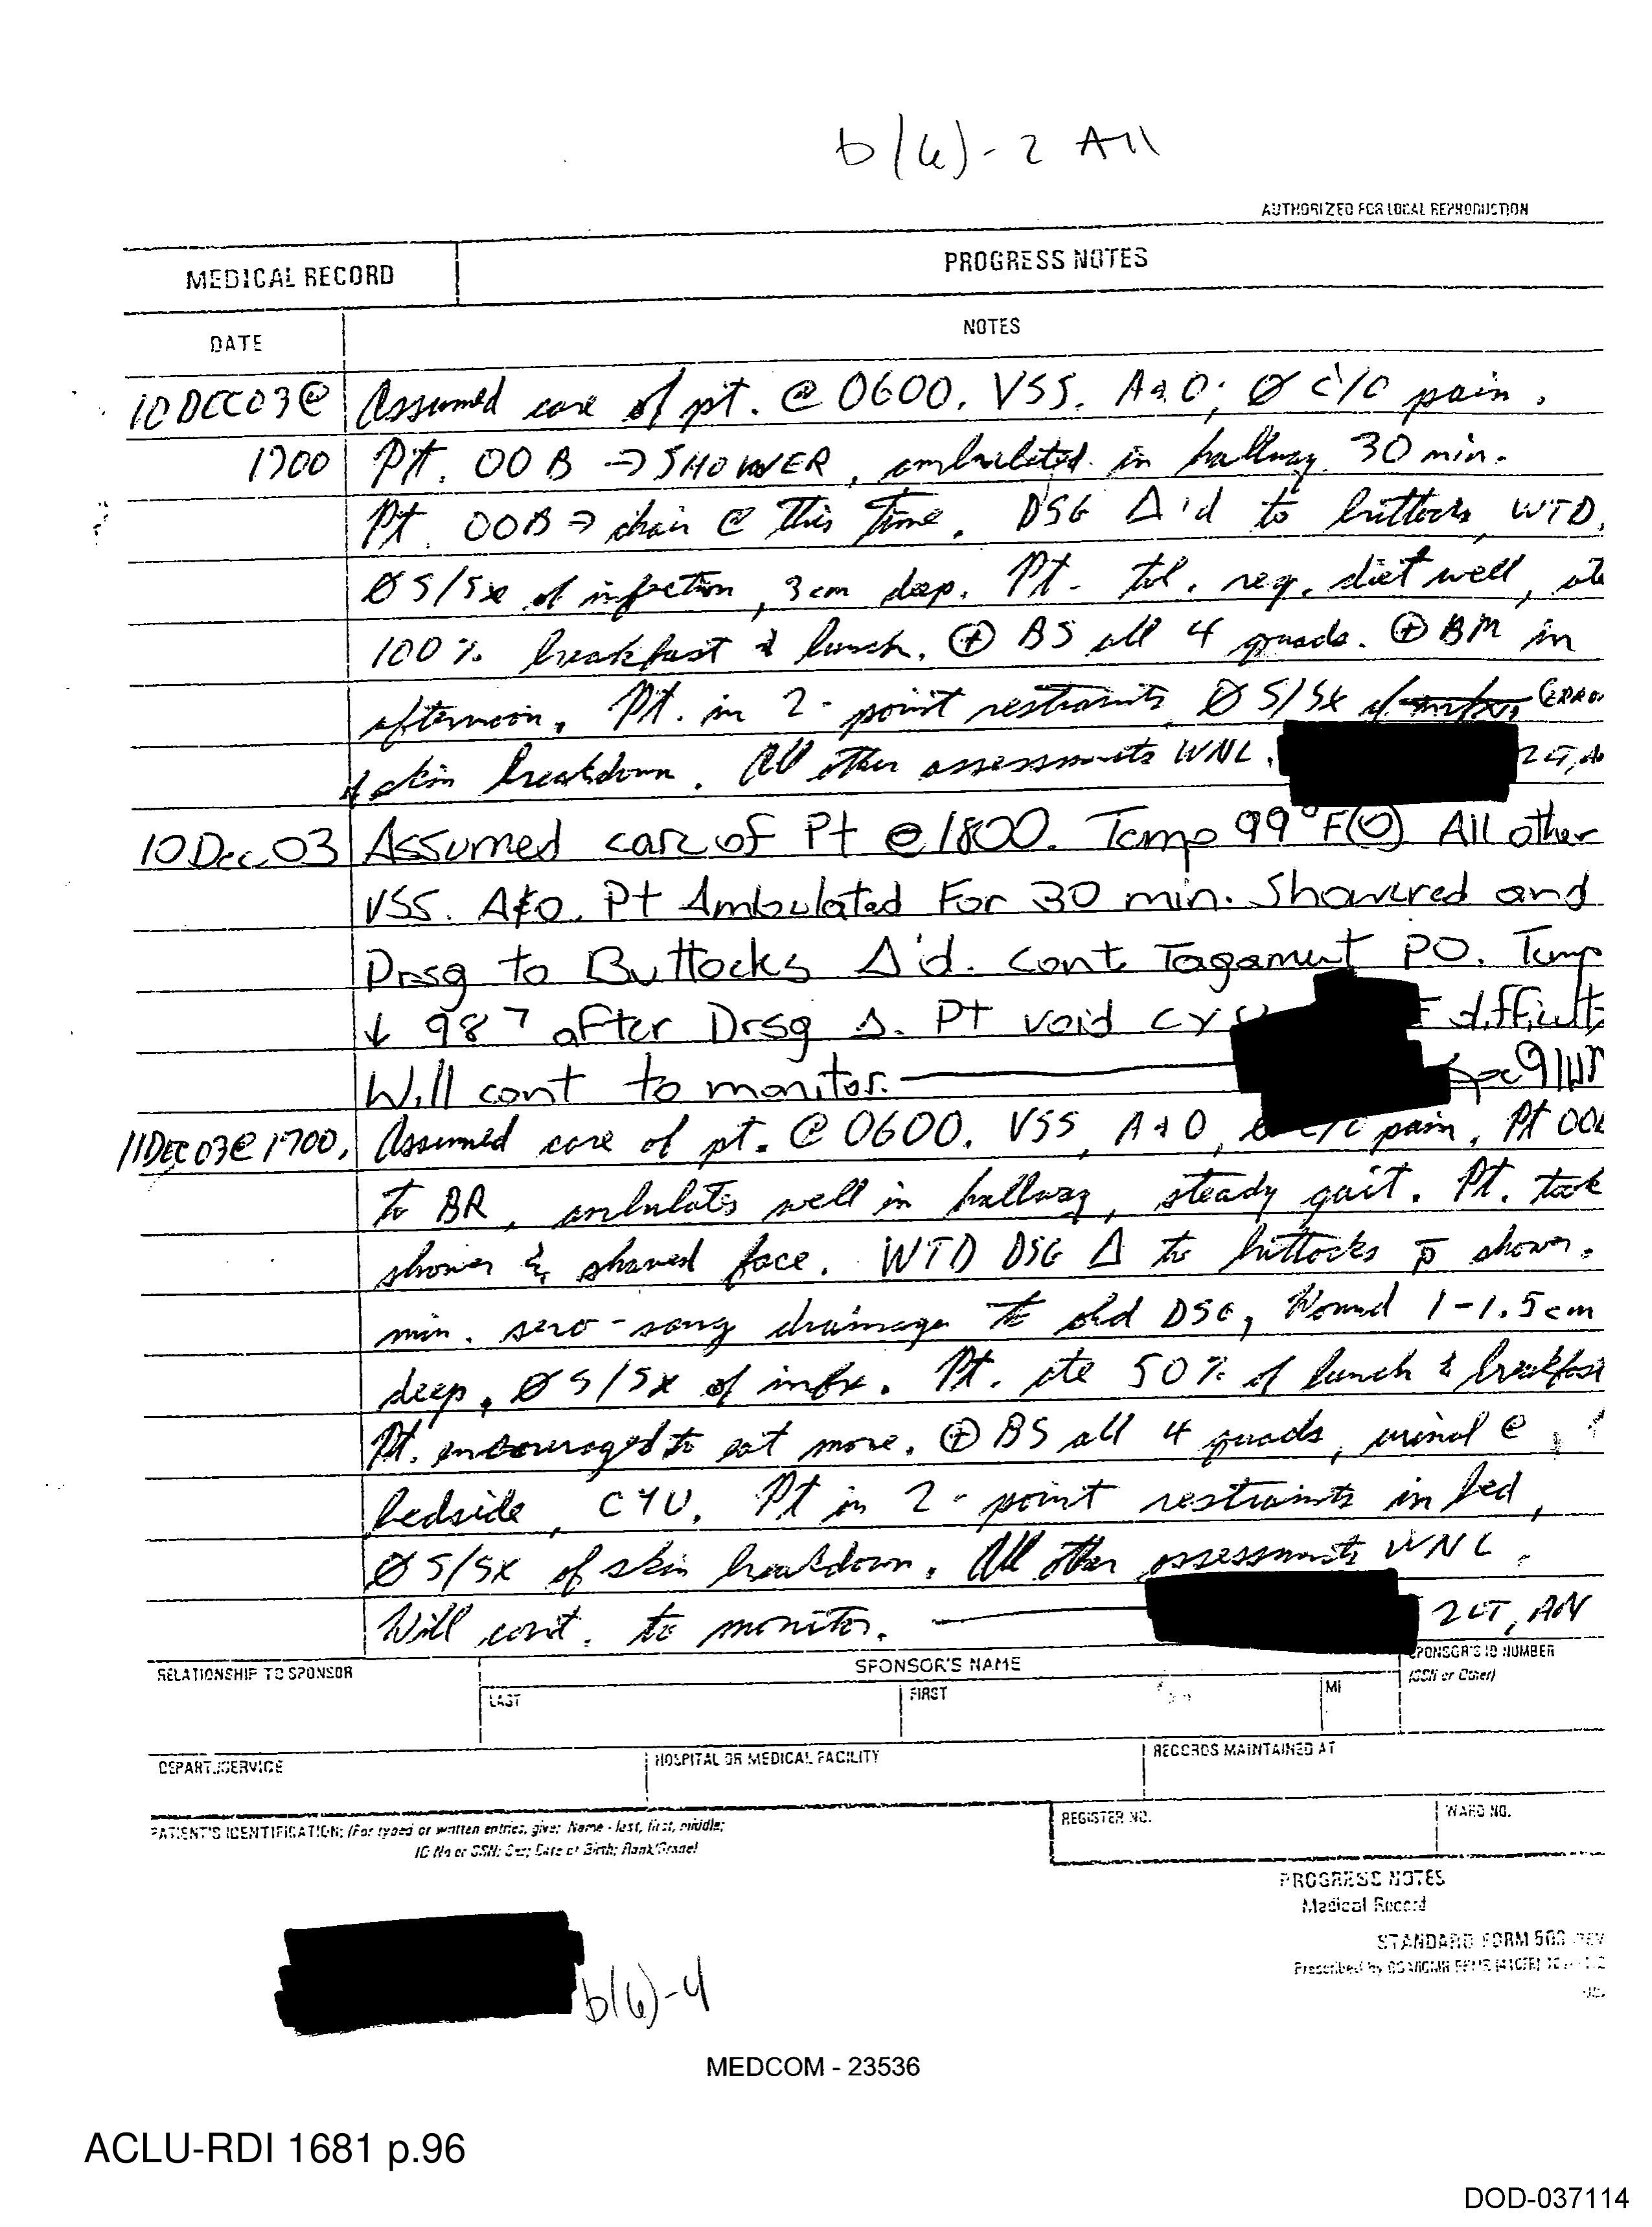 b(6)-2 All
AUTHORIZED FOR LOCAL REPRODUCTION
MEDICAL RECORD
PROGRESS NOTES
DATE
NOTES
10DEC03@ Assumed care of pt. @ 0600. VSS. A&O; Ø c/c pain.
1700 Pt. OOB → SHOWER, ambulated in hallway 30 min.
Pt. OOB → chair @ this time. DSG Δ'd to buttocks, WTD,
Ø S/Sx of infection, 3cm deep. Pt. tol. reg. diet well, ate
100% breakfast & lunch. ⊕ BS all 4 quads. ⊕ BM in
afternoon. Pt. in 2-point restraints Ø S/Sx of
of skin breakdown. All other assessments WNL. 2LT, A
10Dec.03 Assumed care of Pt @1800. Temp 99°F(O) All other
VSS. A&O. Pt Ambulated For 30 min. Showered and
Drsg to Buttocks Δ'd. cont Tagament PO. Temp
↓ 98⁷ after Drsg Δ. Pt void difficult
Will cont to monitor. Spc 91W
11DEC03@1700. Assumed care of pt. @ 0600. VSS, A&O, c/c pain. Pt OO
to BR, ambulates well in hallway, steady gait. Pt. took
shower & shaved face. WTD DSG Δ to buttocks p̄ shower.
min. sero-sang drainage to old DSG, Wound 1-1.5cm
deep. Ø S/Sx of infx. Pt. ate 50% of lunch & breakfast
Pt. encouraged to eat more. ⊕ BS all 4 quads, urinal @
bedside, CYU. Pt in 2-point restraints in bed,
Ø S/SX of skin breakdown. All other assessments WNL.
Will cont. to monitor. 2LT, AN
RELATIONSHIP TO SPONSOR
SPONSOR'S NAME
SPONSOR'S ID NUMBER
(SSN or Other)
LAST
FIRST
MI
DEPART./SERVICE
HOSPITAL OR MEDICAL FACILITY
RECORDS MAINTAINED AT
PATIENT'S IDENTIFICATION: (For typed or written entries, give: Name - last, first, middle;
ID No or SSN; Sex; Date of Birth; Rank/Grade)
REGISTER NO.
WARD NO.
PROGRESS NOTES
Medical Record
STANDARD FORM 509
Prescribed by
b(6)-4
MEDCOM - 23536
ACLU-RDI 1681 p.96
DOD-037114